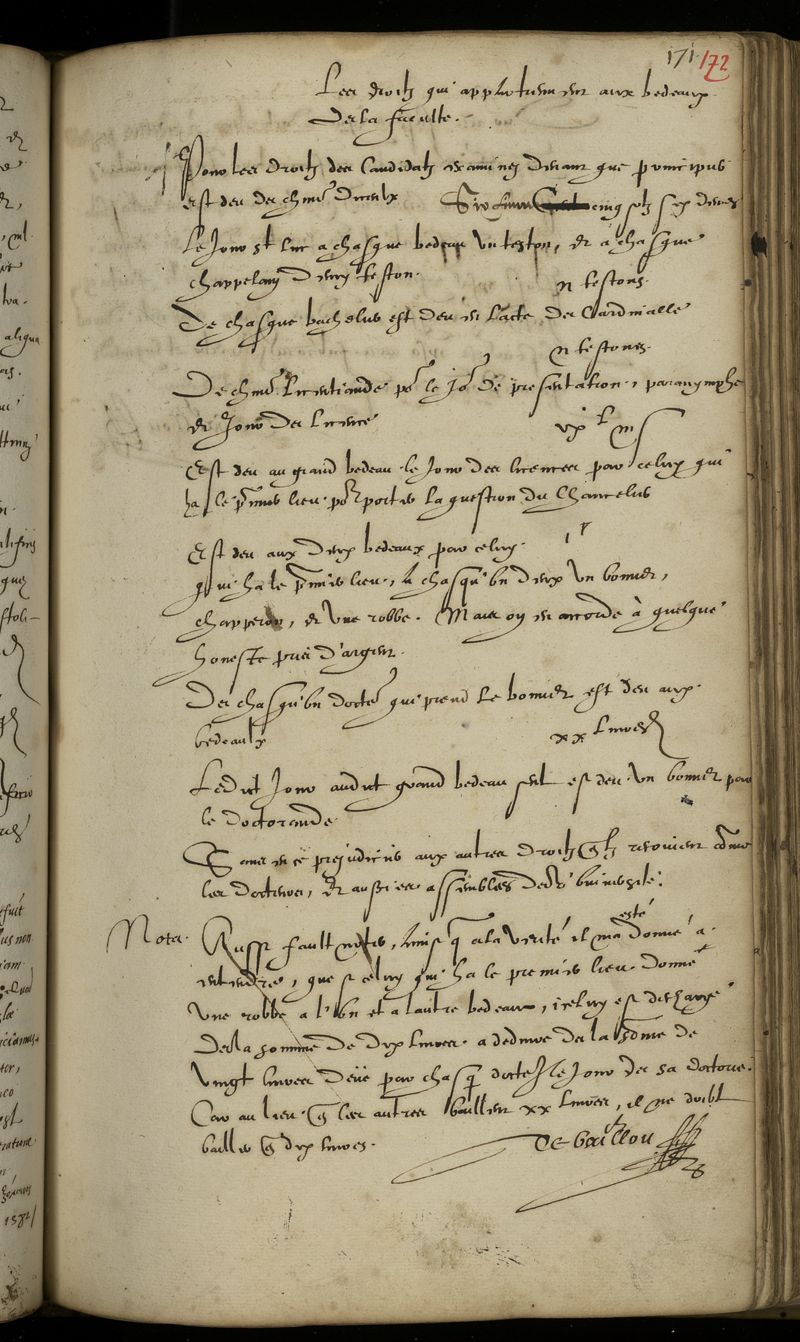 171 172
Les droitz qui appartiennent aux bedeaux
De la faculte.
Pour les droitz des Candidatz examinez devant que
est deu de chũn d'iceulx cinq solz six deniers
Le jour st Luc a chasque bedeau un teston, et a chasque
chappelain demy teston. ii testons.
De chasque bachelier est deu en l'acte de Cardinalle
ii testons.
De chũn licentiande por le jor de presentation, paranymphe
et jour de licence
Est deu au grand bedeau le jour des licences par celuy qui
ha le premier lieu por porter la question du Chancelier
Est deu aux deux bedeaux par celuy
qui ha le premier lieu, a chasqu'un d'eux un bonnet,
chapperon, et une robbe. Mais on en accorde à quelque
honeste pris d'argent.
De chasqu'un docteur qui prend le bonnet est deu aux
bedeaulx xx livres
Ledict jour audict grand bedeau seul est deu un bonnet par
le doctorande.
Sans en ce prejudicier aux autres droitz qlz reçoivent
les docteurs, et aussi es assemblees de l'université.
Nota. Aussi fault noter, ainsi q a la verité il m'a esté donné a
entendre, que si celuy qui ha le premier lieu donne
une robbe a l'un et a l'autre bedeau, iceluy est deschargé
de la somme de dix livres a deduire de la sõme de
vingt livres deüe par chasq docteur le jour de sa doctore.
Car au lieu q les autres baillent xx livres, il ne doibt
bailler q dix livres.
De Baillou